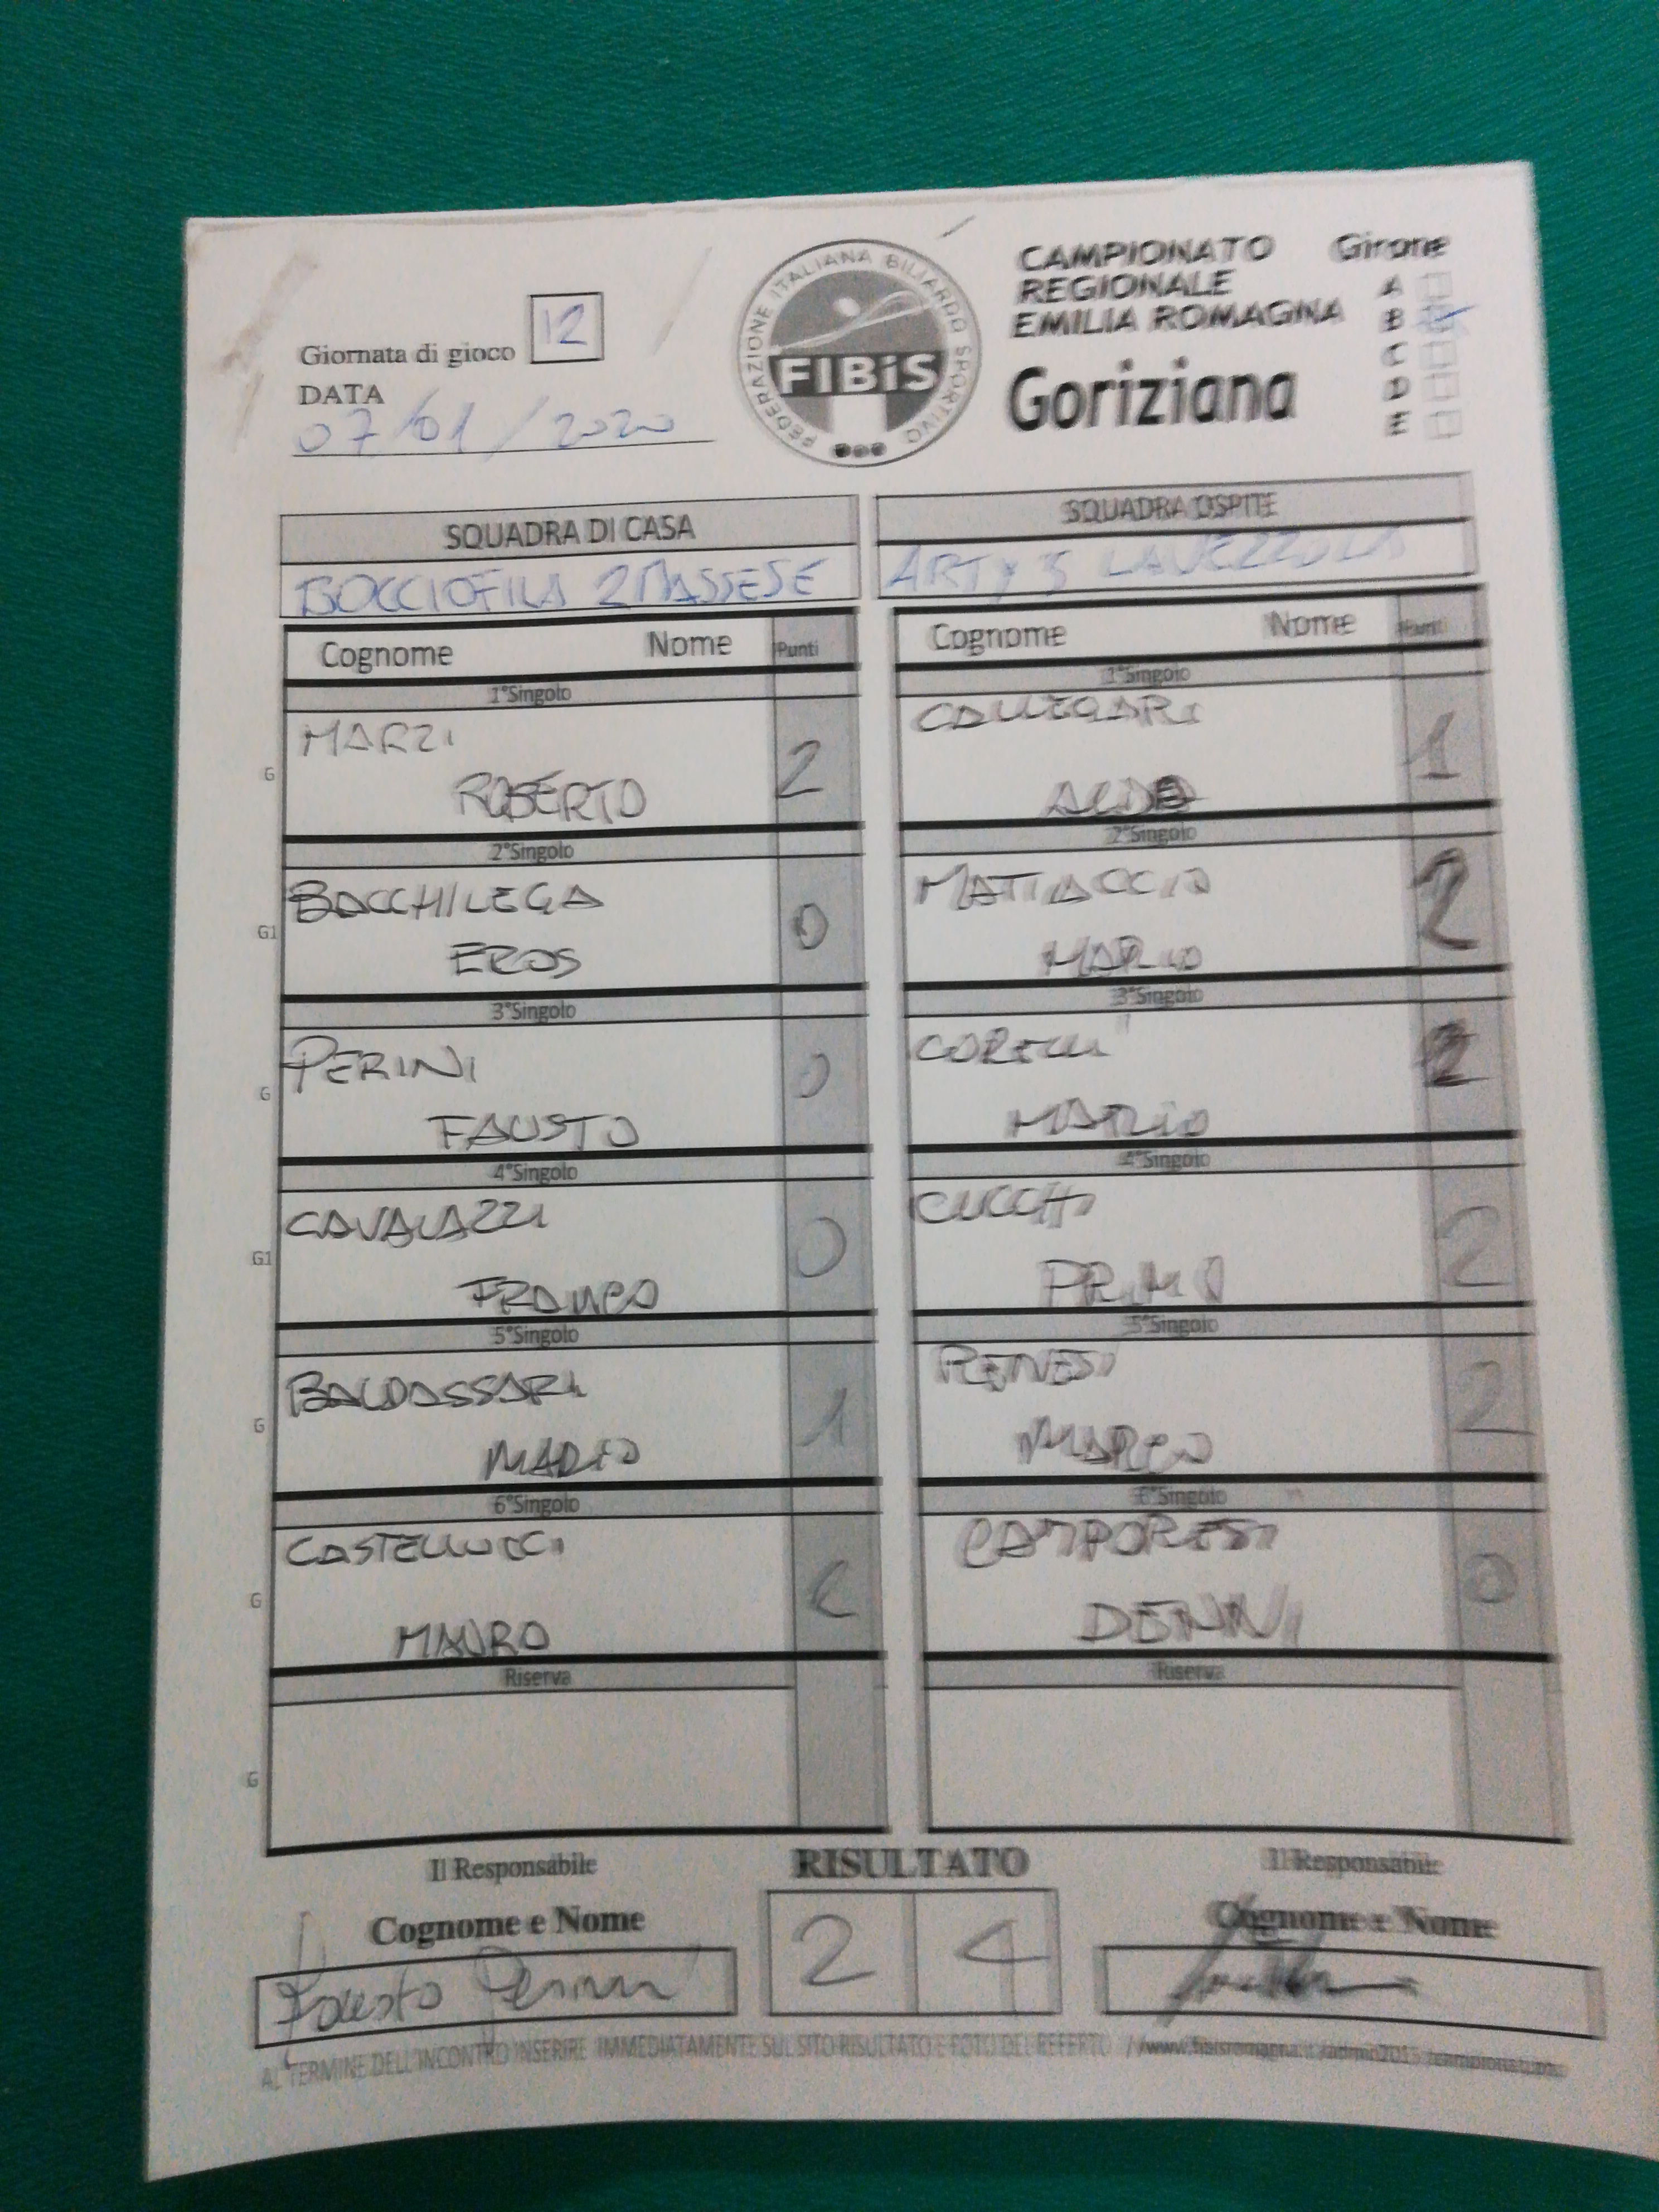 Giornata di gioco 12
DATA
07/01/2020
FEDERAZIONE ITALIANA BILIARDO SPORTIVO
FIBiS
CAMPIONATO
REGIONALE
EMILIA ROMAGNA
Goriziana
Girone
A
B
C
D
E
SQUADRA DI CASA
BOCCIOFILA 2 MASSESE
Cognome Nome Punti
1°Singolo
G
MARZI
ROBERTO
2
2°Singolo
G1
BACCHILEGA
EROS
0
3°Singolo
G
PERINI
FAUSTO
0
4°Singolo
G1
CAVALAZZI
FRANCO
0
5°Singolo
G
BALDASSARI
MARIO
1
6°Singolo
G
CASTELLUCCI
MAURO
Riserva
G
SQUADRA OSPITE
LAVEZZOLA
Cognome Nome Punti
1°Singolo
CALLEGARI
ALDO
1
2°Singolo
MATTIACCIO
MARIO
2
3°Singolo
CORELLI
MARIO
2
4°Singolo
CUCCHI
PRIMO
2
5°Singolo
MARCO
2
6°Singolo
CAMPORESI
DENNI
0
Riserva
Il Responsabile
Cognome e Nome
Fausto Perini
RISULTATO
2 4
Il Responsabile
Cognome e Nome
AL TERMINE DELL'INCONTRO INSERIRE IMMEDIATAMENTE SUL SITO RISULTATO E FOTO DEL REFERTO